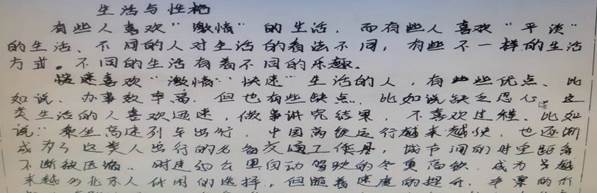 生活与性格
有些人喜欢“激情”的生活，而有些人喜欢“平淡”
的生活、不同的人对生活的看法不同，有些不一样的生活
方式。不同的生活有着不同的乐趣。
喜欢“激情”“快速”生活的人，有些些优点 比
如说、办事效率高、但也有些缺点、比如说缺乏恒心、这
类生活的人喜欢迅速，做事讲究结果，不喜欢过程、比如
说：乘坐高速列车出行，中国高铁运行越来越快，也逐渐
成为了这类人出行的交通工作具，城市间的时空距离
不断被压缩、时速 自动驾驶的冬奥高铁、成为了越
来越 北京人 的选择，但随着速度的提升，车票的